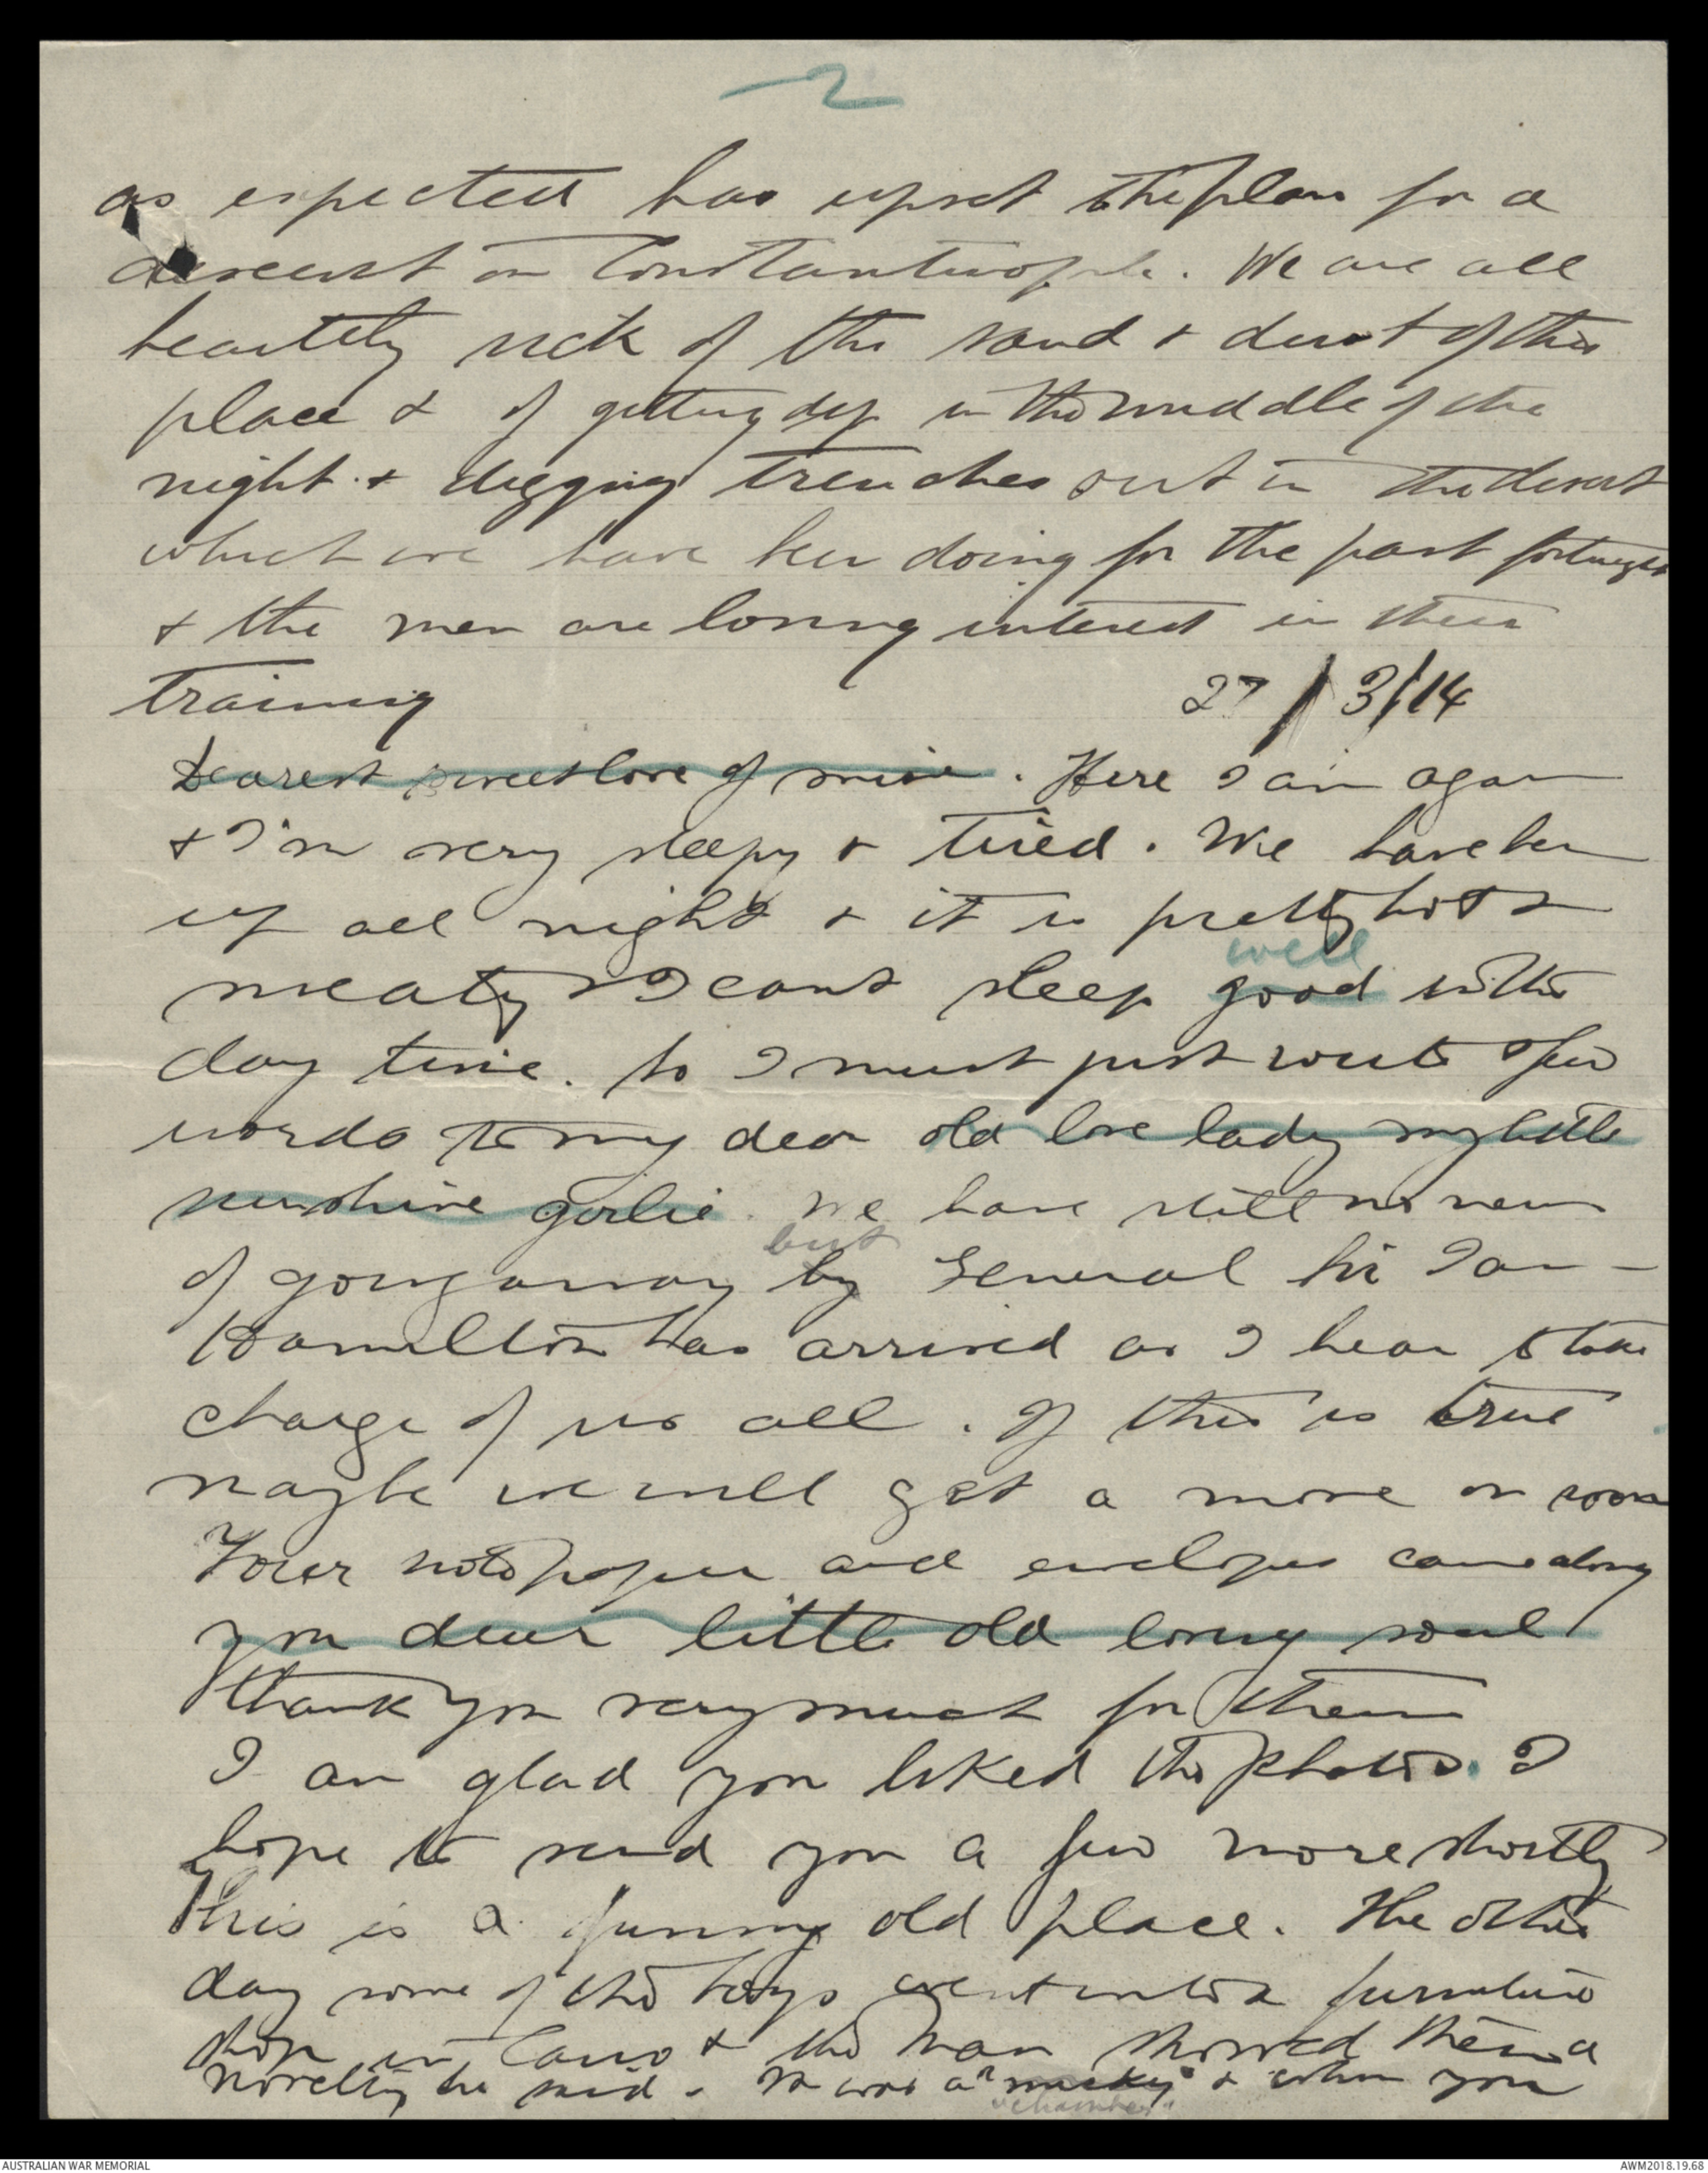 2
as expected has upset the plan for a
descent on Constantinople. We are all
heartily sick of the sand & dust of this
place & of getting up in the middle of the
night & digging trenches out in the desert
which we have been doing for the past fortnight
& the men are losing interest in their
training
27/3/14
Dearest sweet love of mine. Here I am again
& I'm very sleepy & tired. We have been
up all night & it is pretty hot &
well
meaty & I cant sleep good in the
day time. So I must just write a few
words to my dear old love lady my little
sunshine girlie. We have still no news
but
of going away by General Sir Ian
Hamilton has arrived as I hear to take
charge of us all. If this is true
maybe we will get a move on soon
Your note paper and envelopes came along
you dear little old loving soul
thank you very much for them
I am glad you liked the photos. I
hope to send you a few more shortly
This is a funny old place. The other
day some of the boys went into a furniture
shop in Cairo & the man showed them a
novelty he said. It was a "mucky" & when you
"chamber"